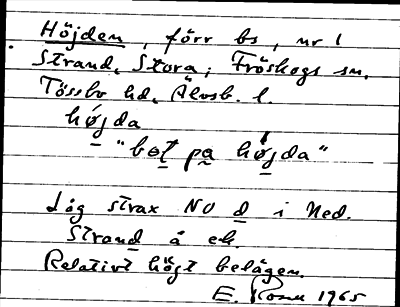 Höjden, förr bs, nr 1
Strand, Stora, Fröskogs sn.
Tössbo hd. Älvsb. l.
höjda
"bot på højda"
Låg strax NO d i Ned.
Strand å ek.
Relativt högt belägen.
E. 1965